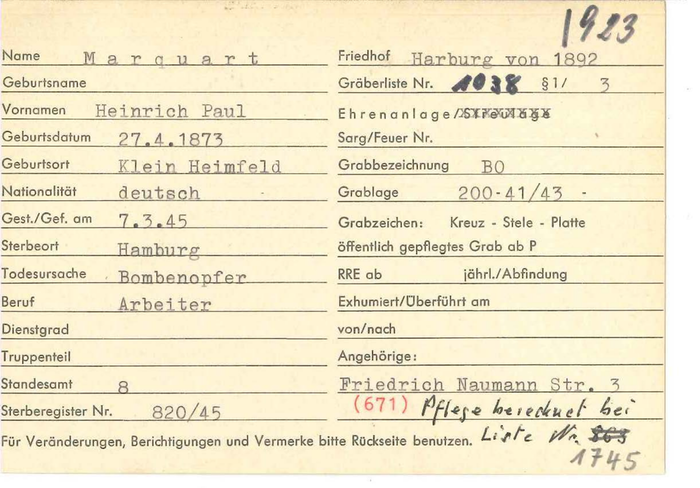 1923
Name Marquart
Geburtsname
Vornamen Heinrich Paul
Geburtsdatum 27.4.1873
Geburtsort Klein Heimfeld
Nationalität deutsch
Gest./Gef. am 7.3.45
Sterbeort Hamburg
Todesursache Bombenopfer
Beruf Arbeiter
Dienstgrad
Truppenteil
Standesamt 8
Sterberegister Nr. 820/45
Friedhof Harburg von 1892
Gräberliste Nr. 1038 §1/ 3
Ehrenanlage/Streulage
Sarg/Feuer Nr.
Grabbezeichnung BO
Grablage 200-41/43 -
Grabzeichen: Kreuz - Stele - Platte
öffentlich gepflegtes Grab ab P
RRE ab jährl./Abfindung
Exhumiert/Überführt am
von/nach
Angehörige:
Friedrich Naumann Str. 3
(671) Pflege berechnet bei
Liste Nr. 863
1745
Für Veränderungen, Berichtigungen und Vermerke bitte Rückseite benutzen.